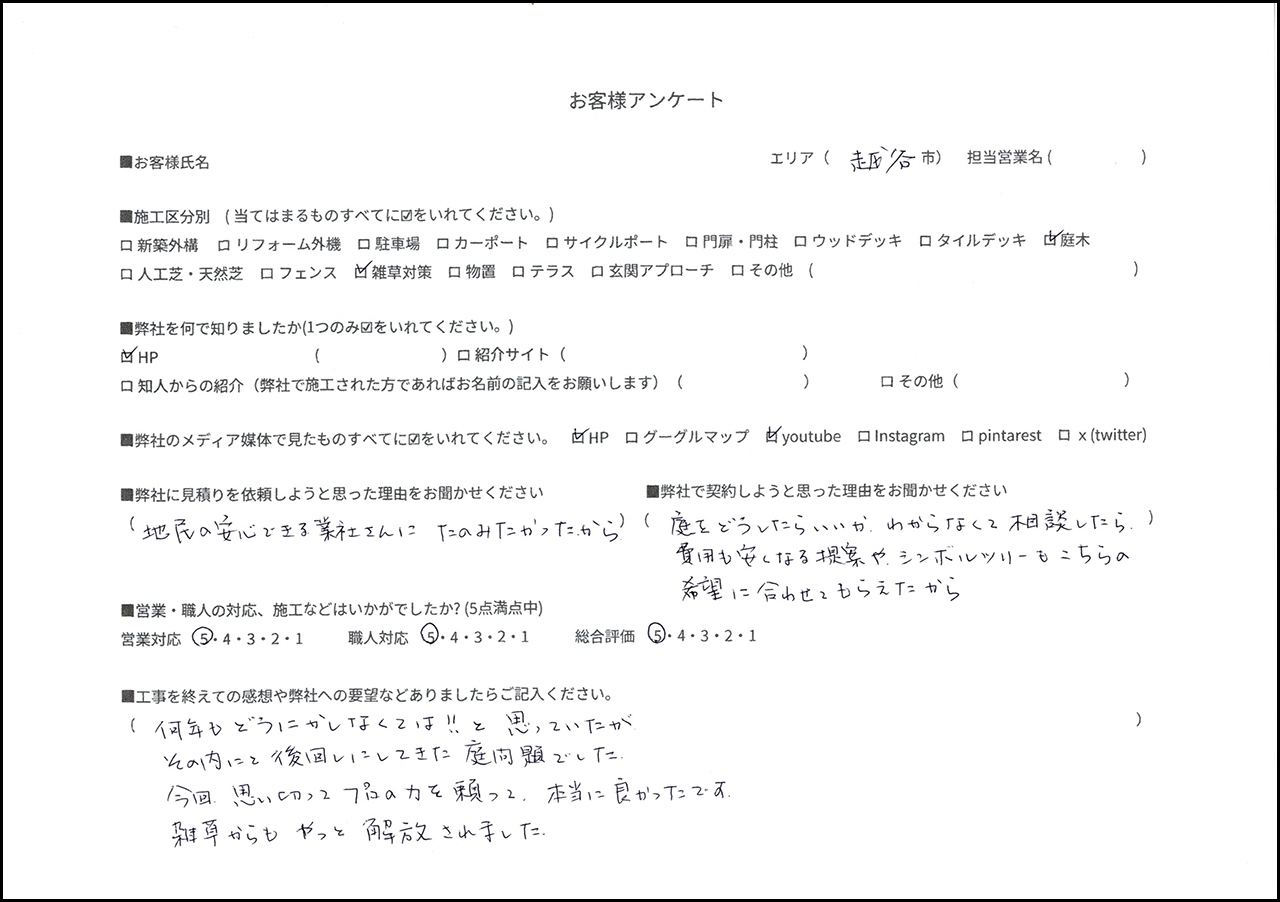 お客様アンケート
■お客様氏名 エリア（ 越谷 市） 担当営業名 ( )
■施工区分別 ( 当てはまるものすべてに☑をいれてください。)
☐ 新築外構 ☐ リフォーム外機 ☐ 駐車場 ☐ カーポート ☐ サイクルポート ☐ 門扉・門柱 ☐ ウッドデッキ ☐ タイルデッキ ☑ 庭木
☐ 人工芝・天然芝 ☐ フェンス ☑ 雑草対策 ☐ 物置 ☐ テラス ☐ 玄関アプローチ ☐ その他 ( )
■弊社を何で知りましたか(1つのみ☑をいれてください。)
☑ HP ( ) ☐ 紹介サイト ( )
☐ 知人からの紹介（弊社で施工された方であればお名前の記入をお願いします） ( ) ☐ その他 ( )
■弊社のメディア媒体で見たものすべてに☑をいれてください。 ☑ HP ☐ グーグルマップ ☑ youtube ☐ Instagram ☐ pintarest ☐ x (twitter)
■弊社に見積りを依頼しようと思った理由をお聞かせください
( 地民の安心できる業社さんに たのみたかったから )
■弊社で契約しようと思った理由をお聞かせください
( 庭をどうしたらいいか わからなくて 相談したら、 )
費用も安くなる提案や、シンボルツリーもこちらの
希望に合わせてもらえたから
■営業・職人の対応、施工などはいかがでしたか? (5点満点中)
営業対応 ⑤・4・3・2・1 職人対応 ⑤・4・3・2・1 総合評価 ⑤・4・3・2・1
■工事を終えての感想や弊社への要望などありましたらご記入ください。
( 何年もどうにかしなくては!! と 思っていたが )
その内にと後回しにしてきた 庭問題でした。
今回、思い切って プロの力を頼って、本当に良かったです。
雑草からも やっと 解放されました。